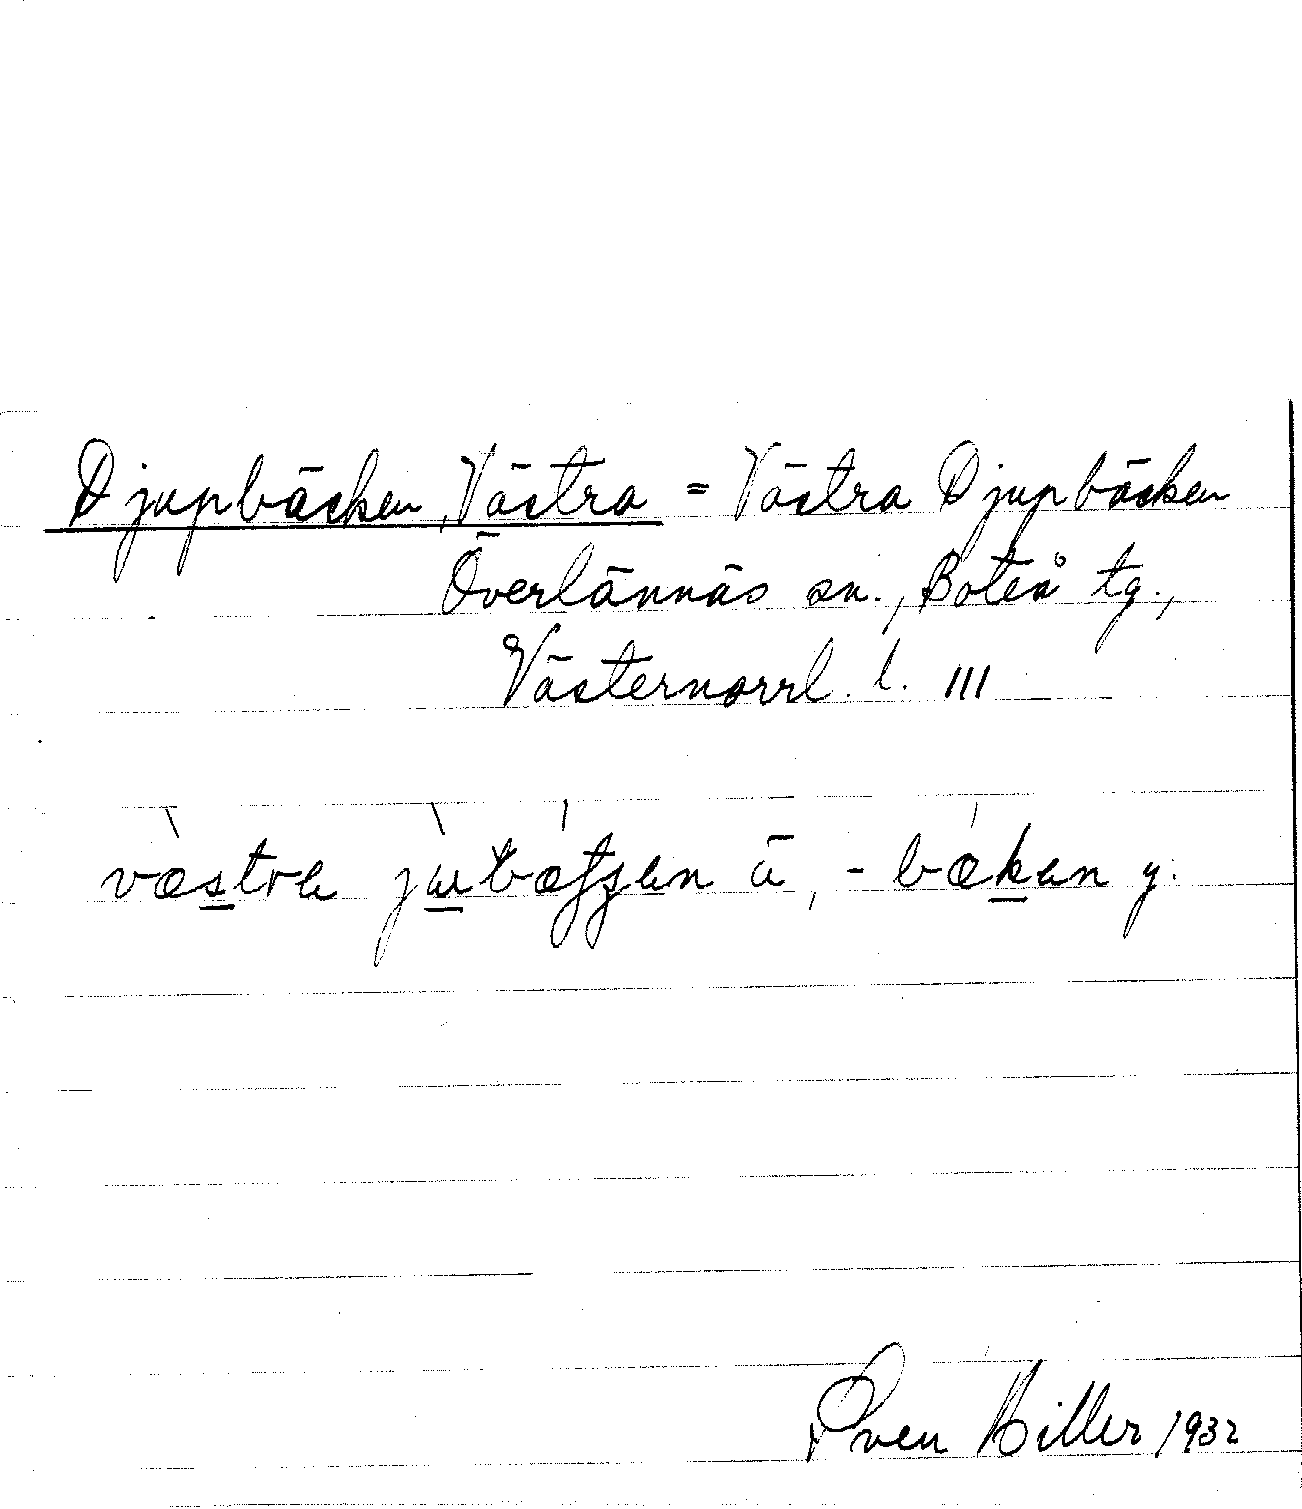 Djupbäcken, Västra = Västra Djupbäcken
Överlännäs sn., Boteå tg.,
Västernorrl. l. III
væstra ä, -bækan y.
Sven Hiller 1932